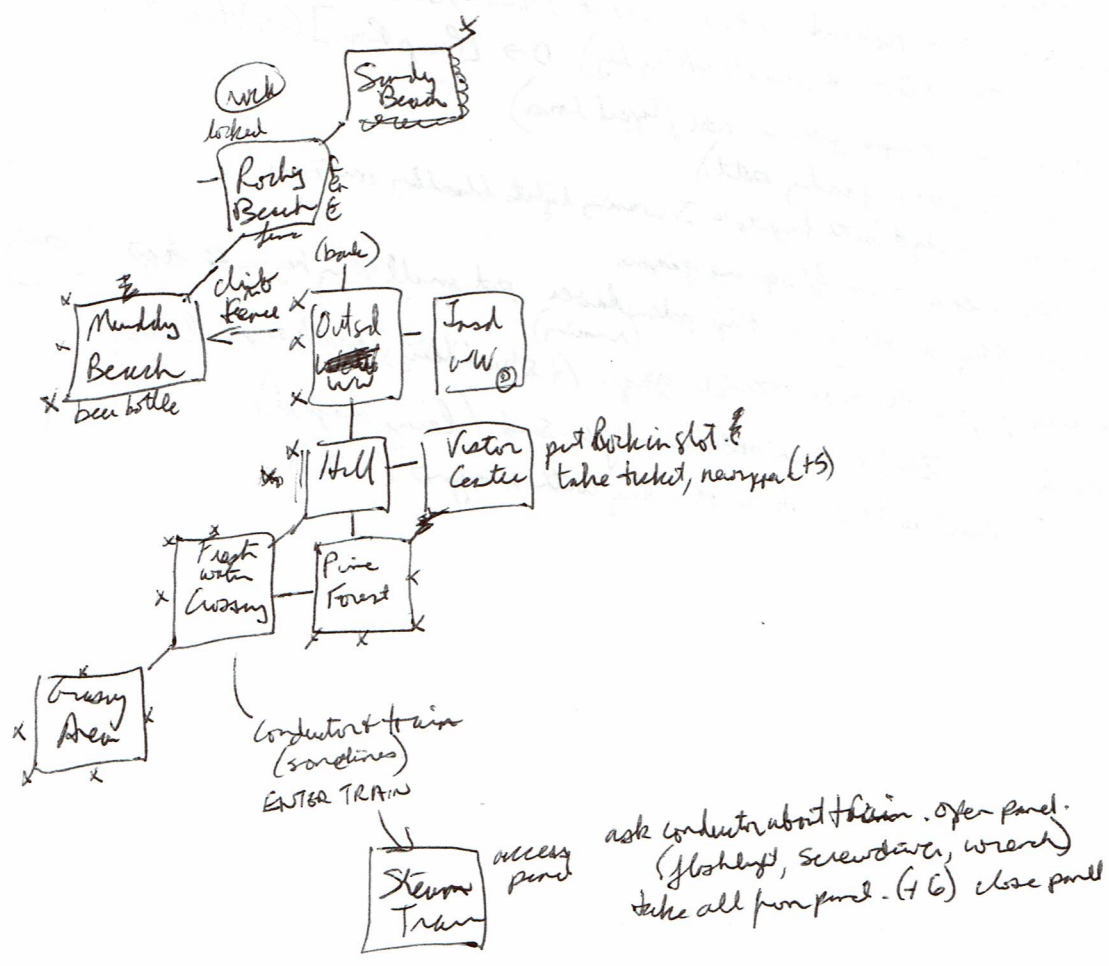 Sandy
Beach
rock
locked
Rocky
Beach
fence
(bank)
climb
fence
Muddy
Beach
beer bottle
Outsd
WW
Insd
WW
Hill
Vistor
Center
put Bock in slot.
take ticket, newspaper (+5)
Fresh
water
Crossing
Pine
Forest
Grassy
Area
Conductor & train
(sometimes)
ENTER TRAIN
Steam
Train
access
panel
ask conductor about train. open panel.
(flashlight, screwdriver, wrench)
take all from panel. (+6) close panel